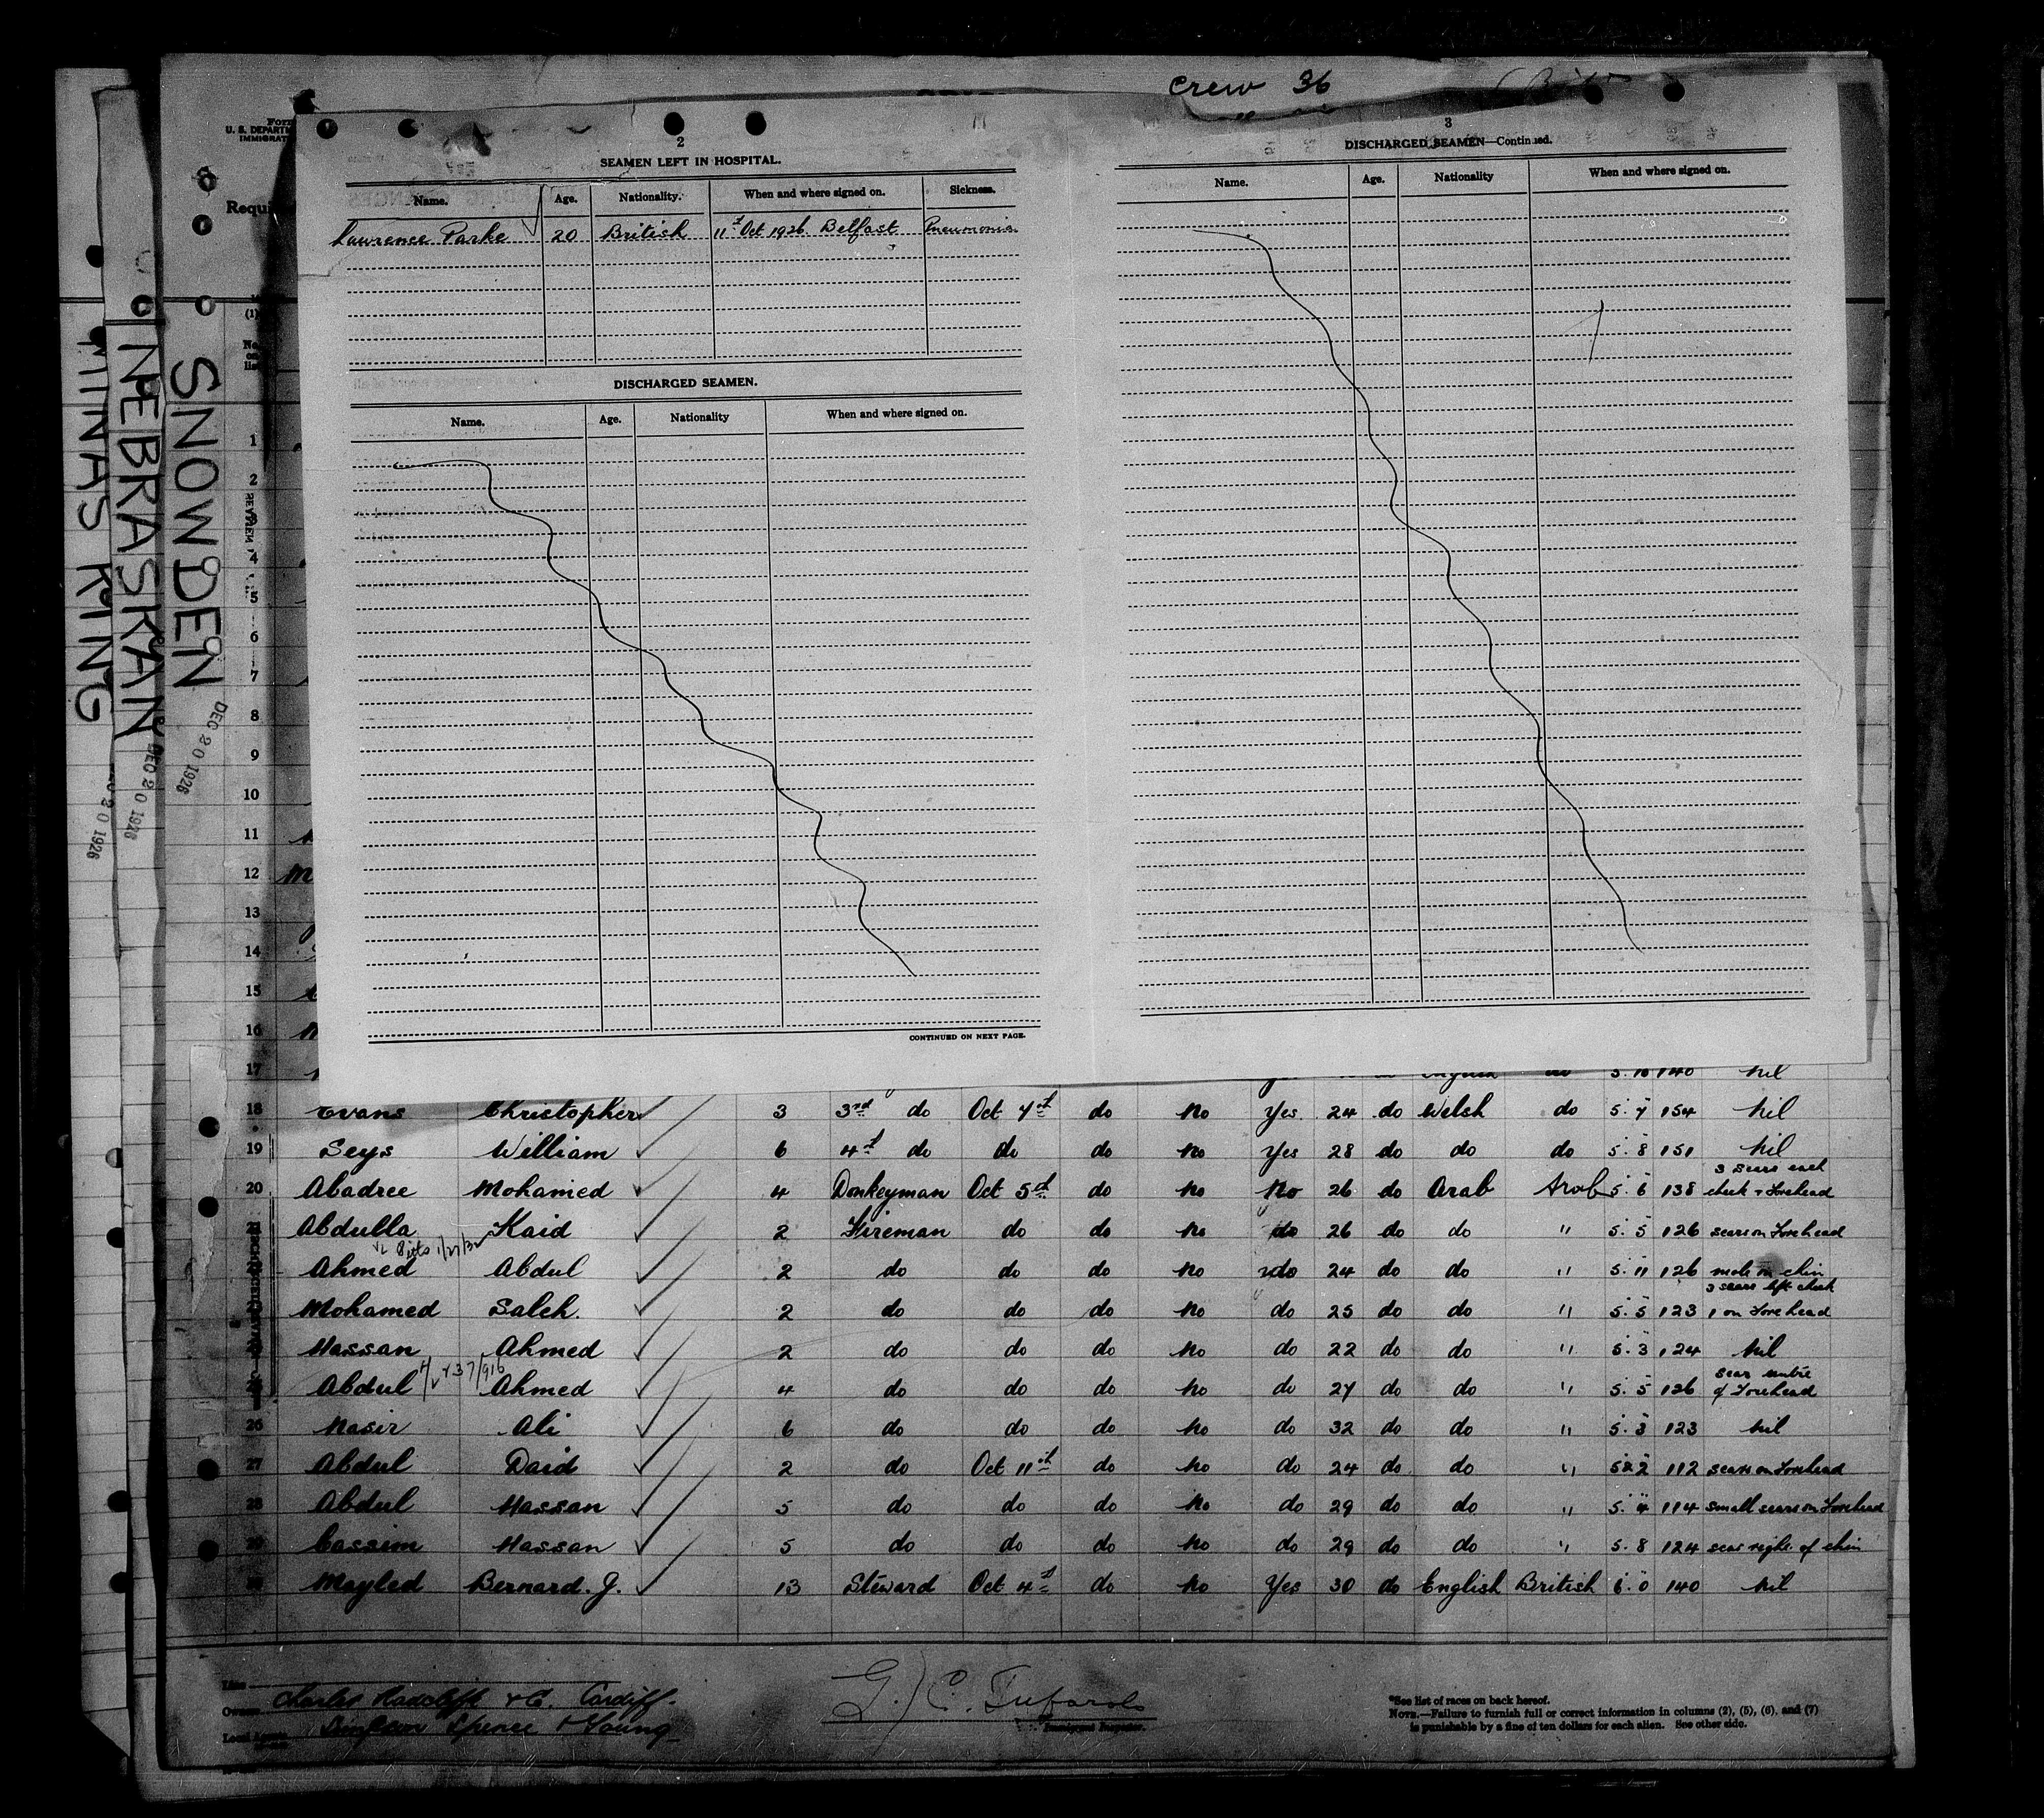 crew 36
Form
U. S. DEPARTM
IMMIGRAT
Requi
MINAS KING
NEBRASKAN
SNOWDEN
DEC 20 1926
DEC 20 1926
20 1926
2
SEAMEN LEFT IN HOSPITAL.
Name. Age. Nationality. When and where signed on. Sickness.
Lawrence Parke 20 British 11th Oct 1926 Belfast Pneumonia
DISCHARGED SEAMEN.
Name. Age. Nationality When and where signed on.
CONTINUED ON NEXT PAGE.
3
DISCHARGED SEAMEN—Continued.
Name. Age. Nationality When and where signed on.
(1)
No.
on
list
1
2
3
4
5
6
7
8
9
10
11
12 M
13
14
15
16
17 English do 5.10 140 Nil
18 Evans Christopher 3 3rd do Oct 4th do No Yes 24 do Welsh do 5.7 154 Nil
19 Seys William 6 4th do do do No Yes 28 do do do 5.8 151 Nil
20 Abadree Mohamed 4 Donkeyman Oct 5th do No No 26 do Arab Arab 5.6 138 3 scars each cheek + forehead
21 Abdulla Kaid 2 Fireman do do No do 26 do do " 5.5 126 scars on forehead
1/27/32
22 Ahmed Abdul 2 do do do No do 24 do do " 5.11 126 mole on chin
23 Mohamed Saleh. 2 do do do No do 25 do do " 5.5 123 3 scars left cheek 1 on forehead
24 Hassan Ahmed 2 do do do No do 22 do do " 5.3 124 Nil
25 Abdul Ahmed 4 do do do No do 27 do do " 5.5 126 scar centre of forehead
26 Nasir Ali 6 do do do No do 32 do do " 5.3 123 Nil
27 Abdul Daid 2 do Oct 11th do No do 24 do do " 5.2 112 scars on forehead
28 Abdul Hassan 5 do do do No do 29 do do " 5.4 114 small scars on forehead
29 Cassim Hassan 5 do do do No do 29 do do " 5.8 124 scar right of chin
30 Mayled Bernard. J. 13 Steward Oct 4th do No Yes 30 do English British 6.0 140 Nil
Line
Owners Charles Radcliffe & Co. Cardiff.
Local Agents Simpson Spence & Young
Immigrant Inspector.
*See list of races on back hereof.
NOTE.—Failure to furnish full or correct information in columns (2), (5), (6), and (7)
is punishable by a fine of ten dollars for each alien. See other side.